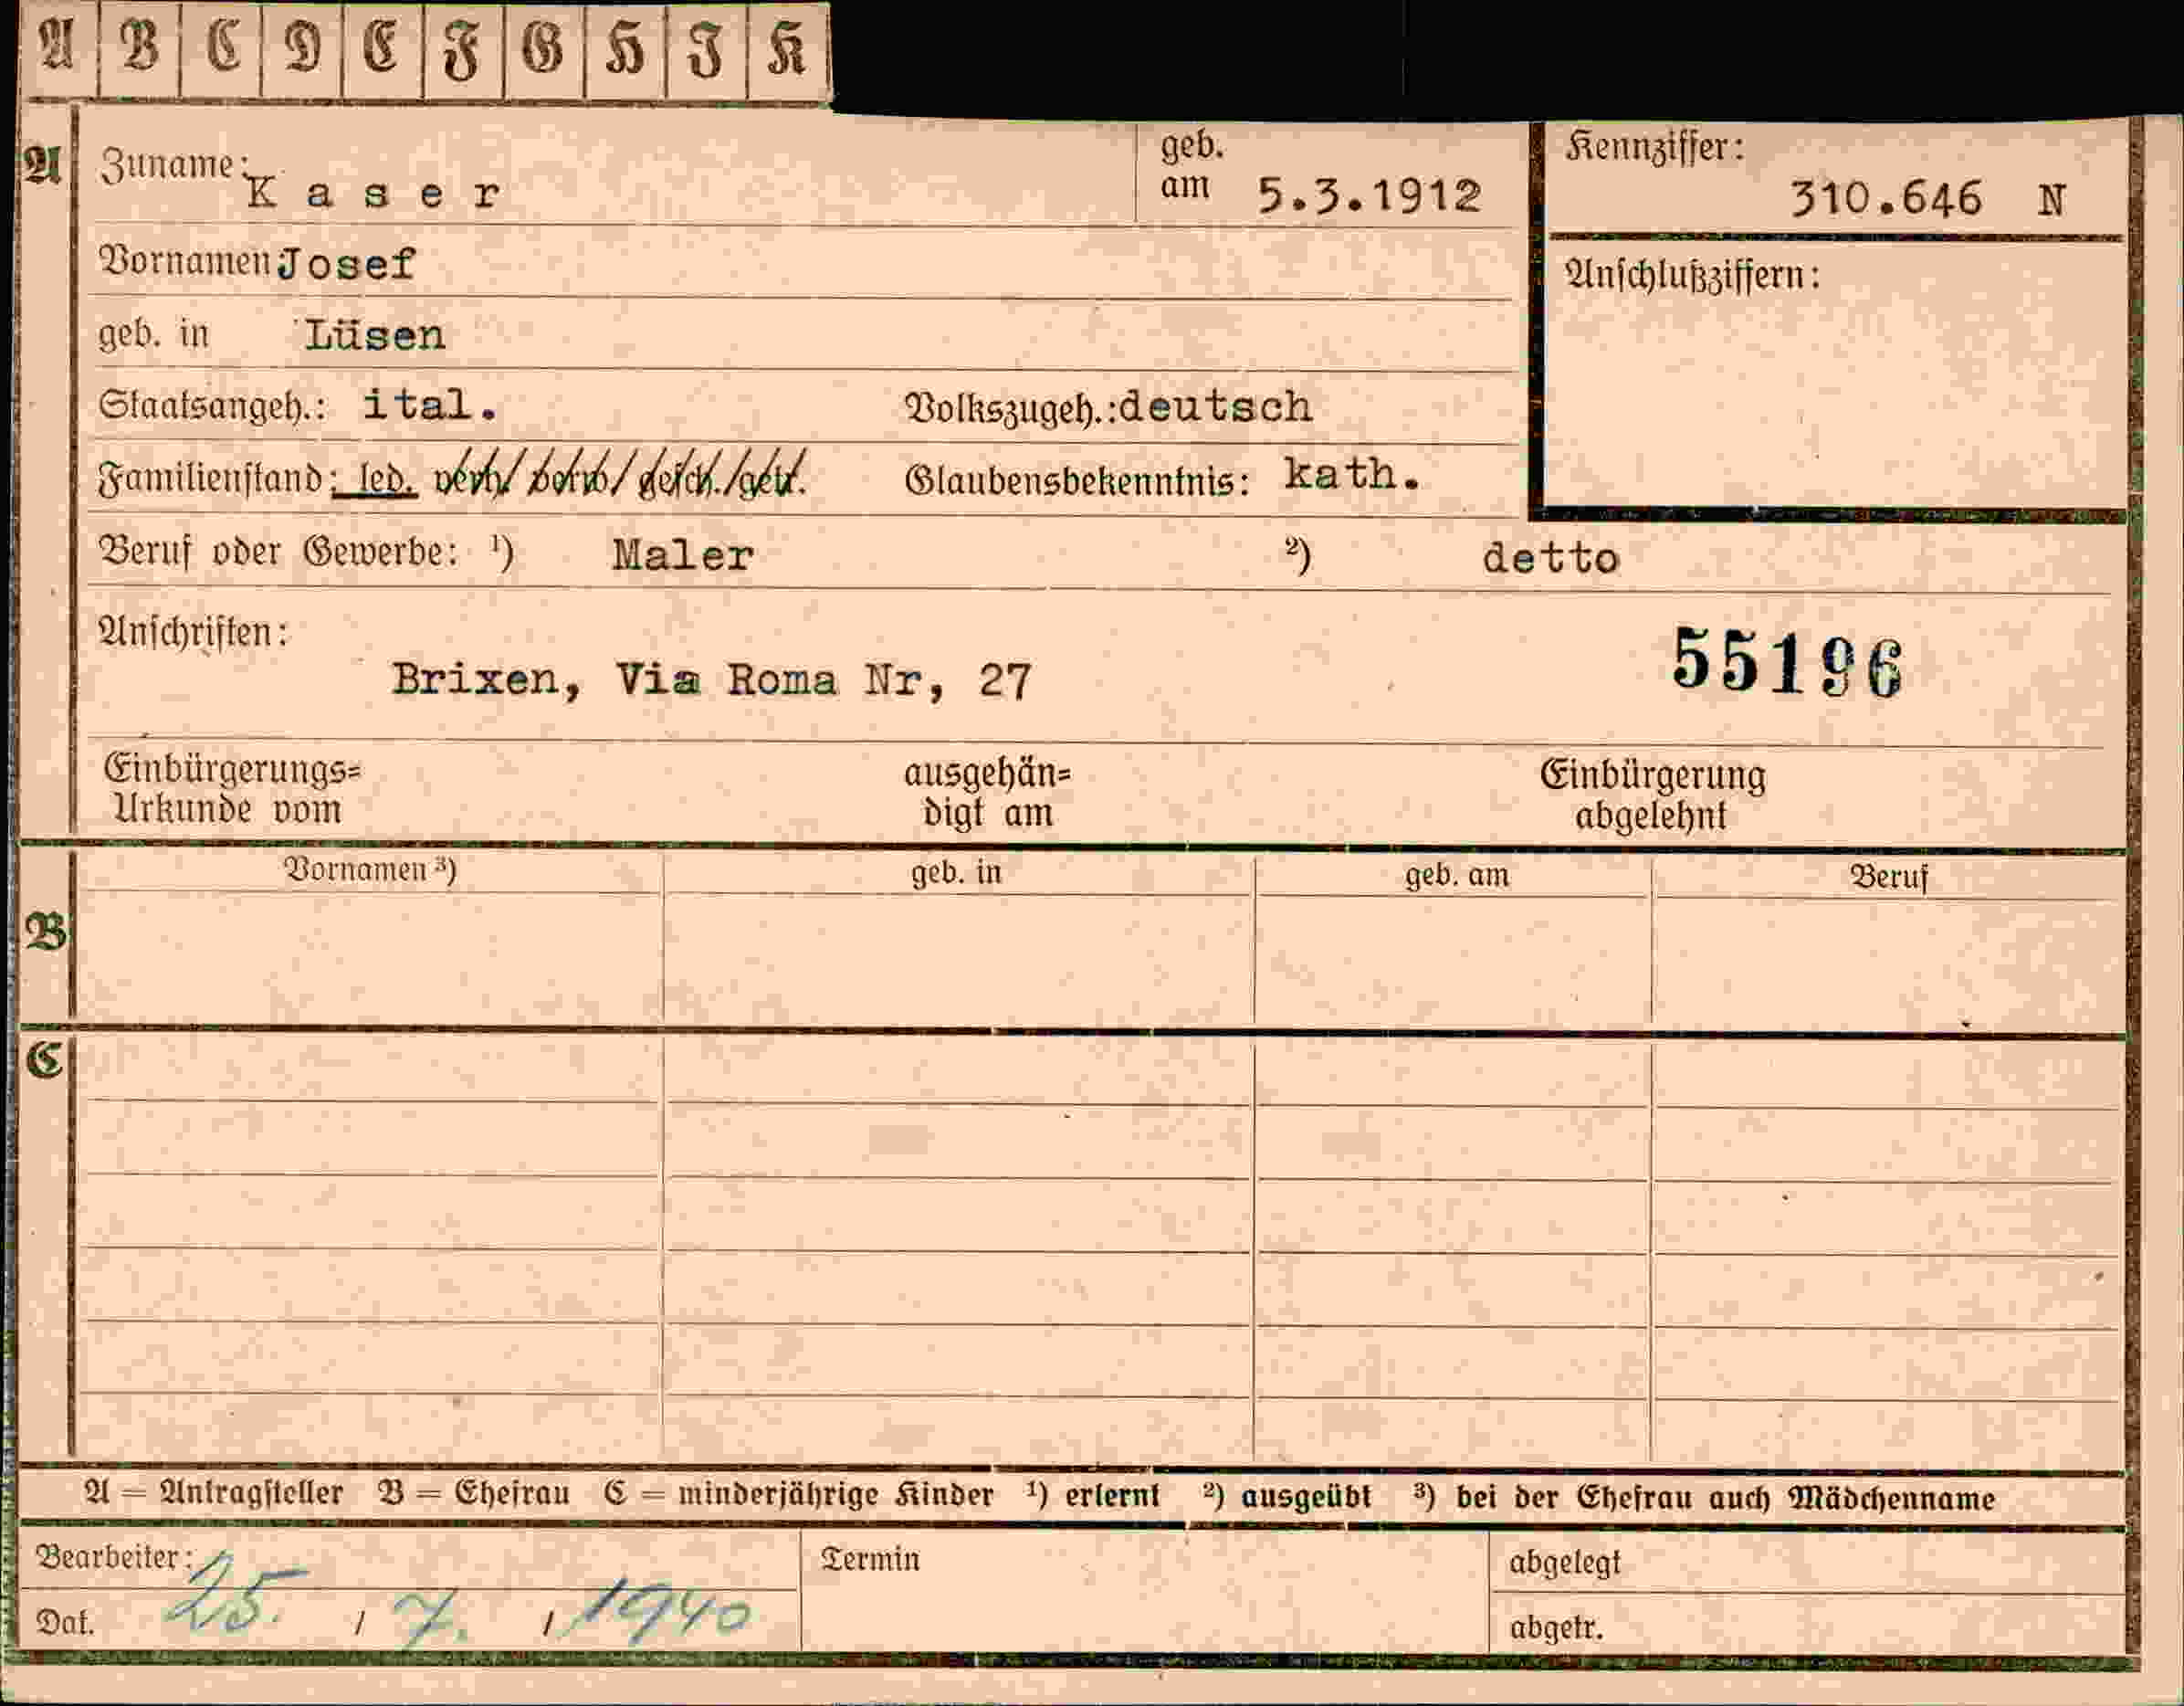 A B C D E F G H I K
A Zuname: Kaser geb. am 5.3.1912 Kennziffer: 310.646 N
Vornamen: Josef Anschlußziffern:
geb. in Lüsen
Staatsangeh.: ital. Volkszugeh.: deutsch
Familienstand: led. verh/ verw/ gesch./getr. Glaubensbekenntnis: kath.
Beruf oder Gewerbe: ¹) Maler ²) detto
Anschriften: 55196
Brixen, Via Roma Nr, 27
Einbürgerungs= ausgehän= Einbürgerung
Urkunde vom digt am abgelehnt
Vornamen ³) geb. in geb. am Beruf
B
C
A = Antragsteller B = Ehefrau C = minderjährige Kinder ¹) erlernt ²) ausgeübt ³) bei der Ehefrau auch Mädchenname
Bearbeiter: Termin abgelegt
Dat. 25. / 7. / 1940 abgetr.